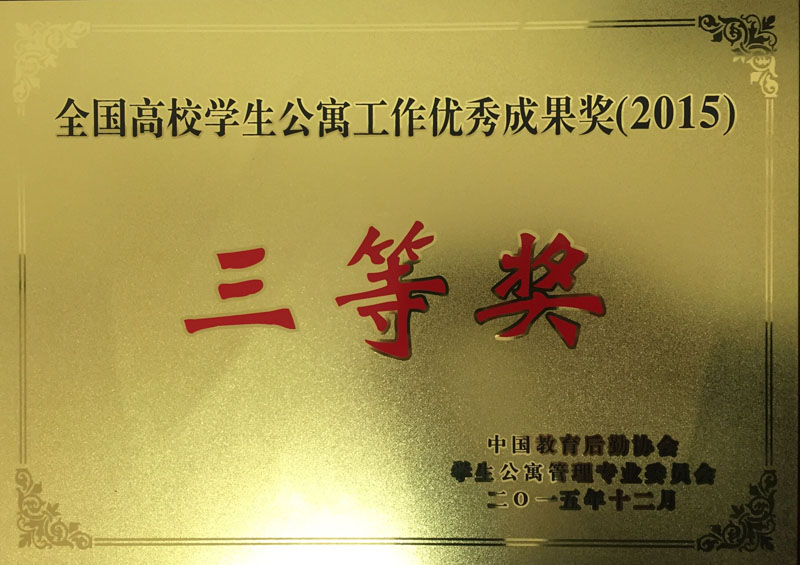 全国高校学生公寓工作优秀成果奖(2015)
三等奖
中国教育后勤协会
学生公寓管理专业委员会
二〇一五年十二月